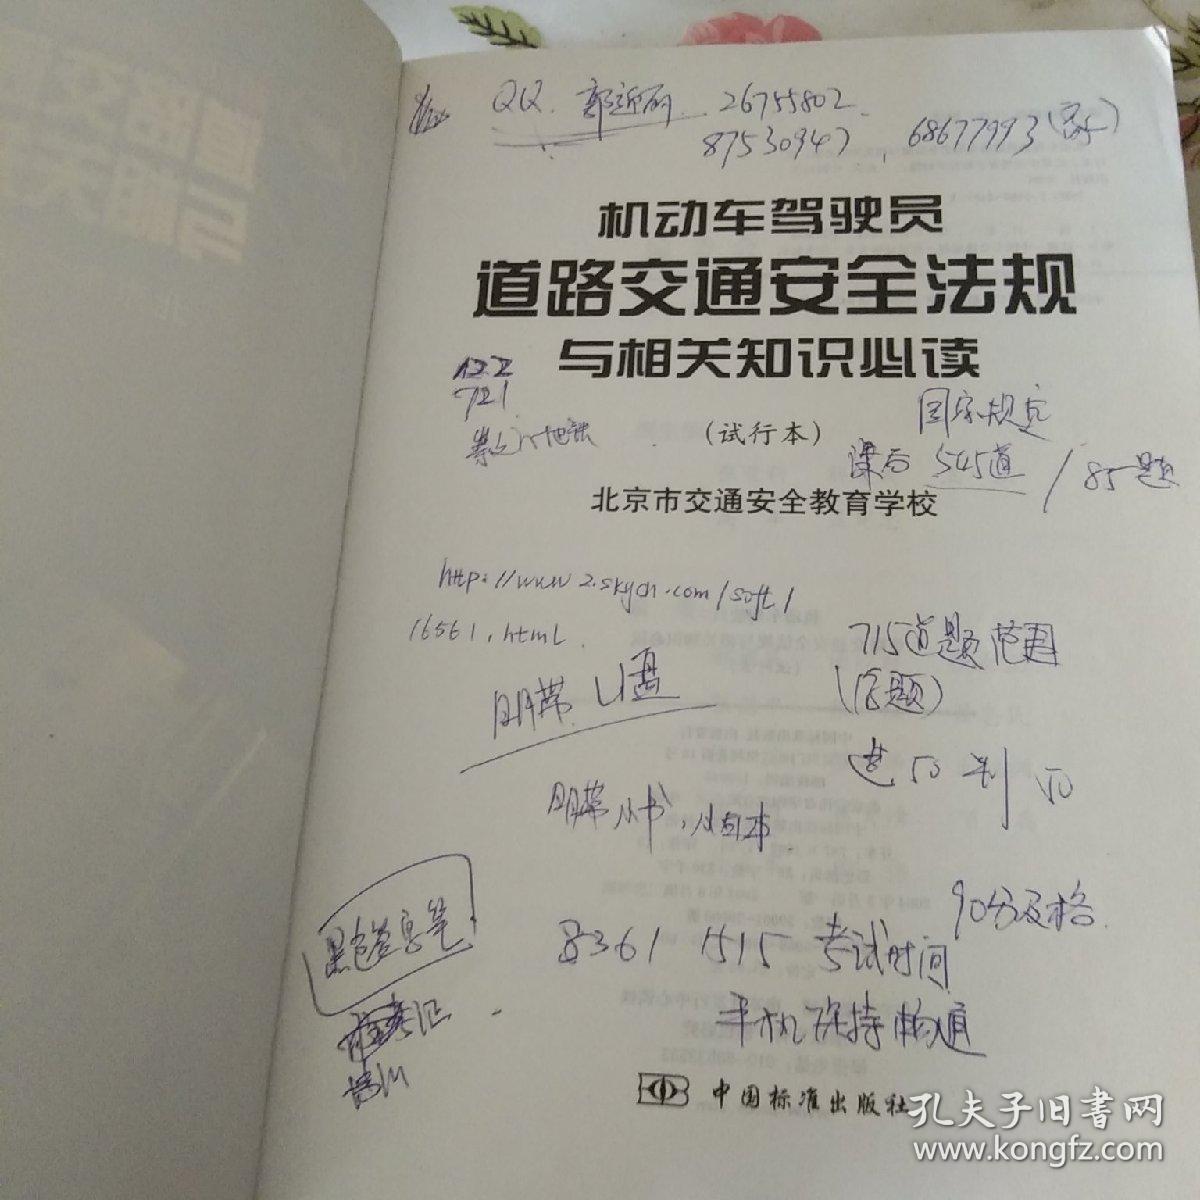 QQ. 26755802
87530947, 68677993
机动车驾驶员
道路交通安全法规
与相关知识必读
122
721
(试行本)
国家规定
课后 545道 / 85题
北京市交通安全教育学校
http://www2.skycn.com/soft/
16561.html
715道题范围
明带 U盘
选50 判50
明带
90分及格
黑色签字笔
8361 1515 考试时间
准考证
手机保持畅通
中国标准出版社
孔夫子旧书网
www.kongfz.com